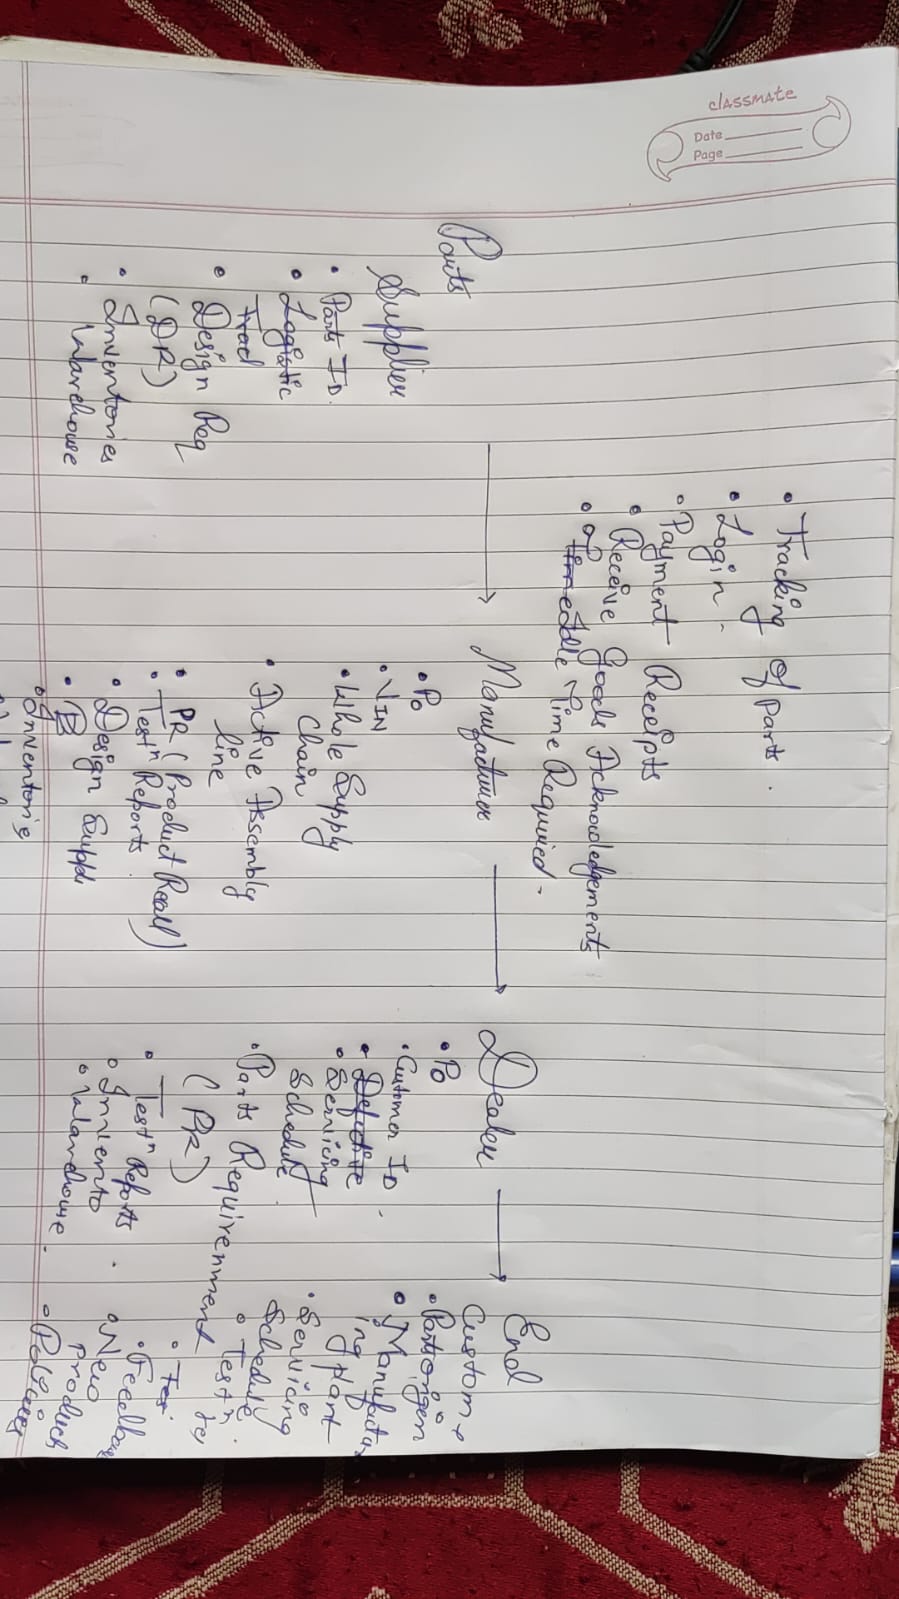 classmate
Date
Page
• Tracking of parts.
• Login -
• Payment Receipts
• Receive Goods Acknowledgements
• Time Idle Time Required -
Parts
Supplier
• Parts ID.
• Logistic
Trad
• Design Req
(DR)
• Inventories
• Warehouse
Manufacturer
• Po
• VIN
• Whole Supply
Chain
• Active Assembly
line
• PR (Product Recall)
• Testⁿ Reports
• Design Suppl
• B
• Inventories
Dealer
• Po
• Customer ID
• Defective
• Servicing
Schedule
• Parts Requirenment
(PR)
• Testⁿ Reports
• Invento
• Warehouse.
End
Custome
• Parts origen
• Manufactur
ing plant
• Servicing
Schedule.
• Testⁿ
re
• Tes
• Feedback
• New
product
• Policies